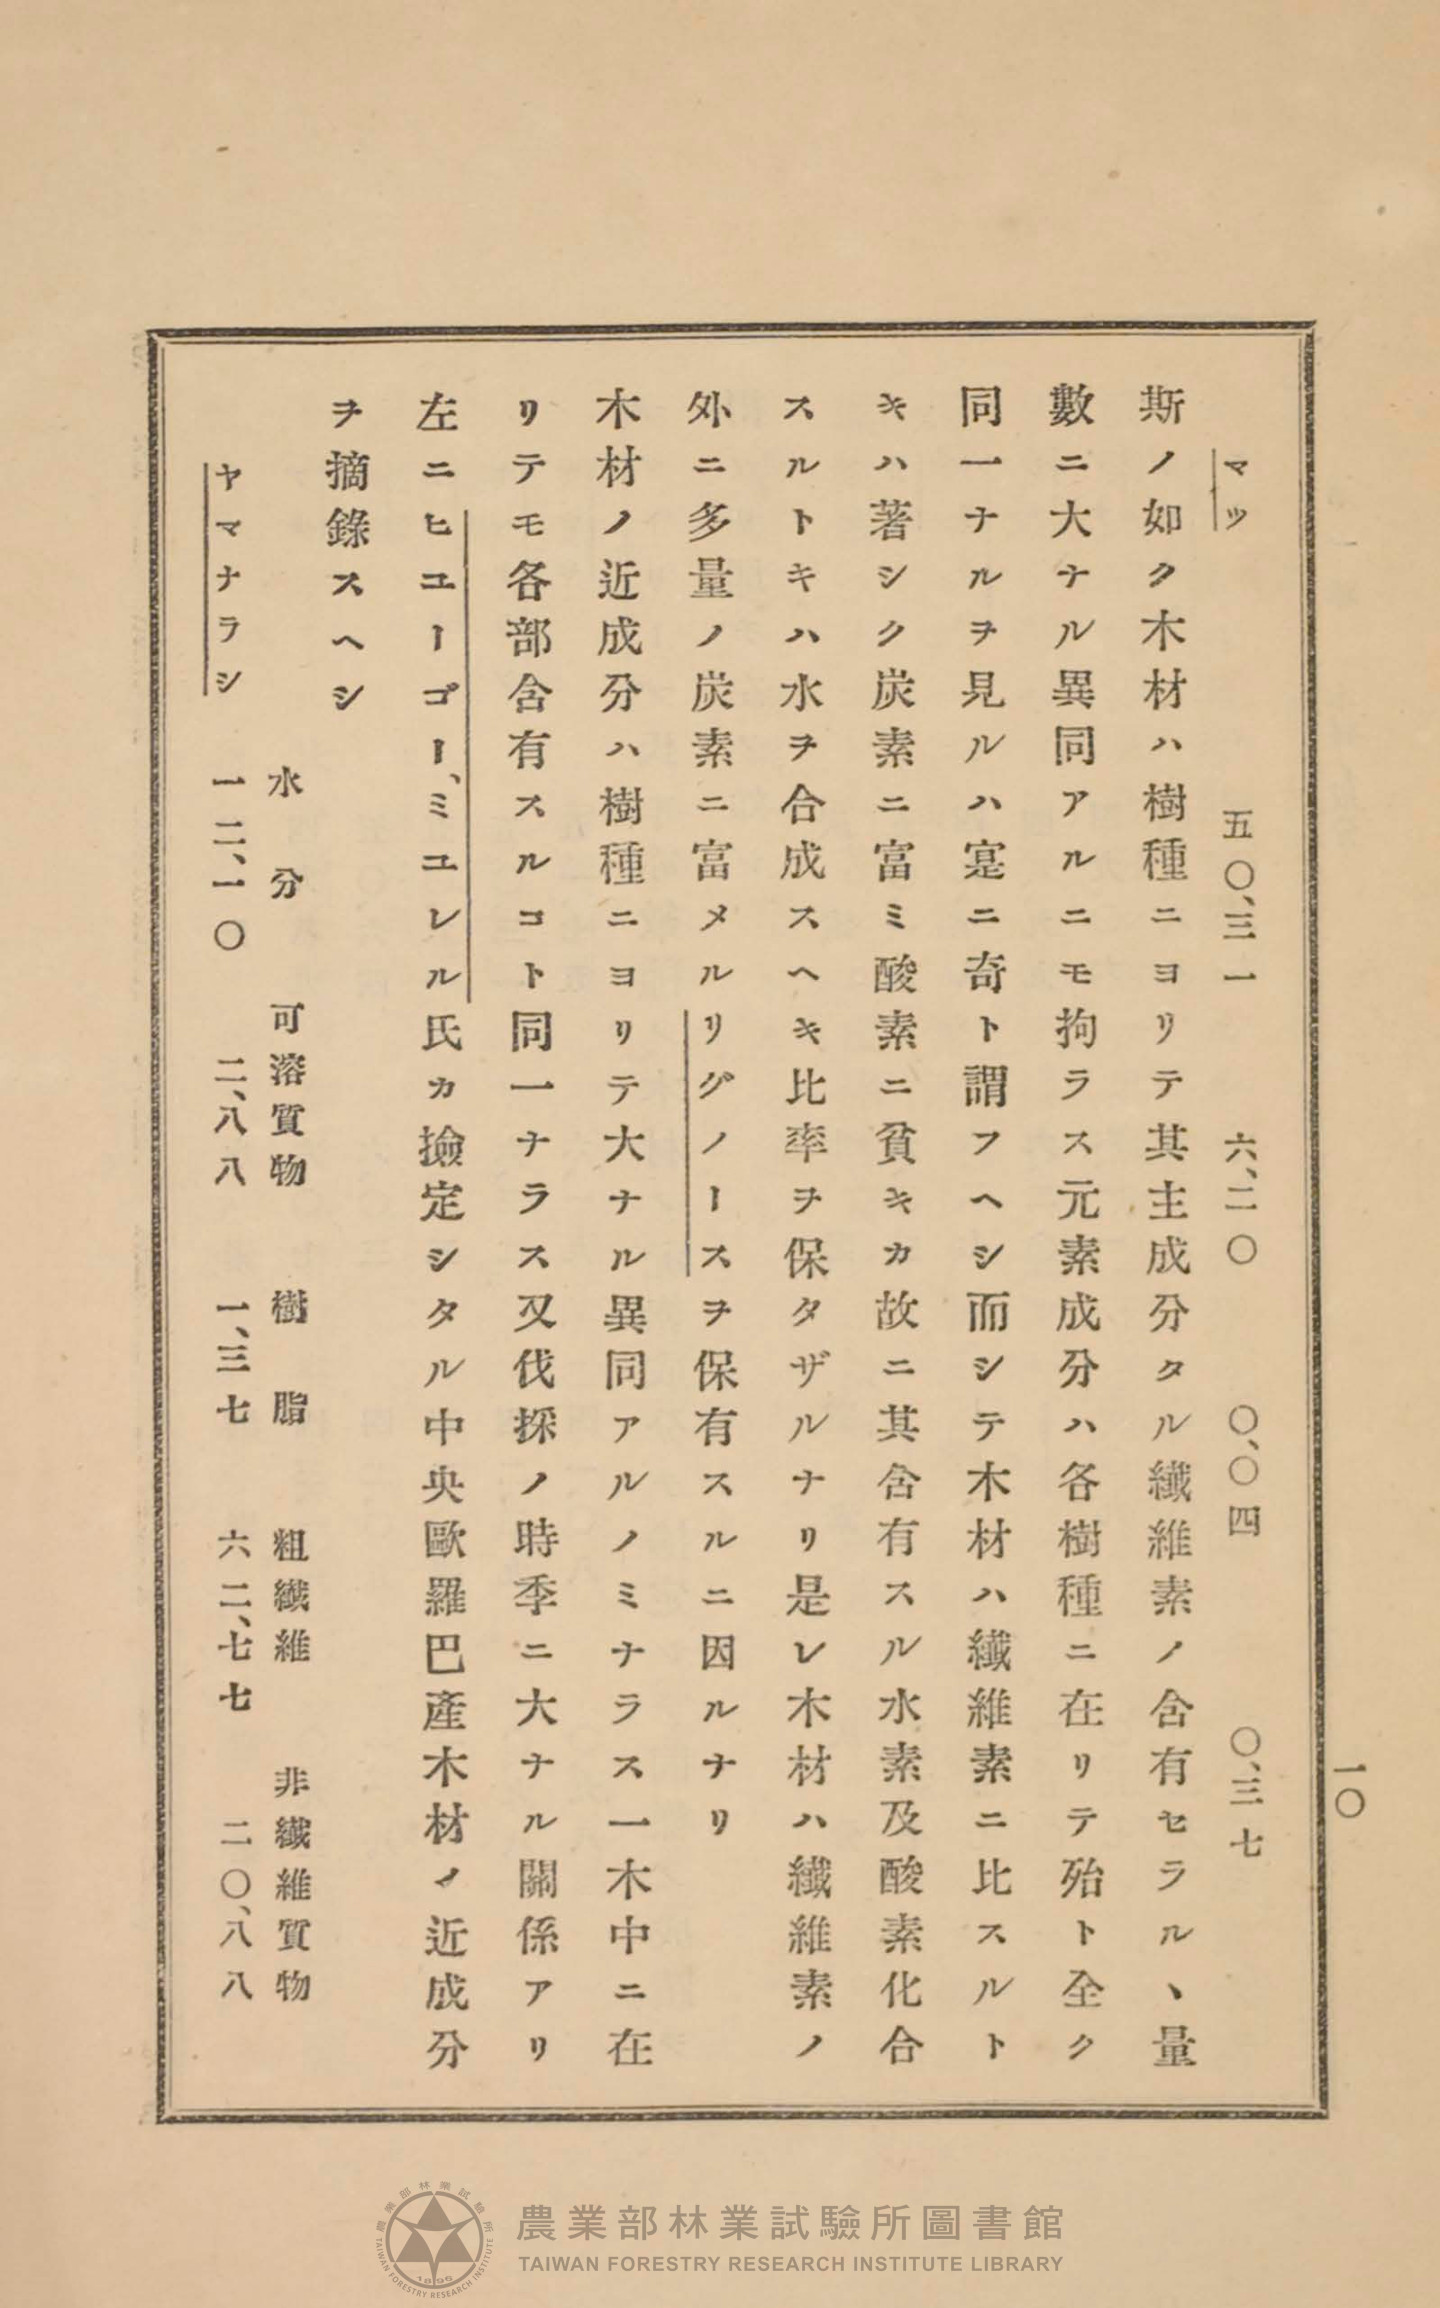 一〇
マツ　五〇、三一　六、二〇　〇、〇四　〇、三七
斯ノ如ク木材ハ樹種ニヨリテ其主成分タル纎維素ノ含有セラルヽ量
數ニ大ナル異同アルニモ拘ラス元素成分ハ各樹種ニ在リテ殆ト全ク
同一ナルヲ見ルハ寔ニ奇ト謂フヘシ而シテ木材ハ纎維素ニ比スルト
キハ著シク炭素ニ富ミ酸素ニ貧キカ故ニ其含有スル水素及酸素化合
スルトキハ水ヲ合成スヘキ比率ヲ保タザルナリ是レ木材ハ纎維素ノ
外ニ多量ノ炭素ニ富メルリグノースヲ保有スルニ因ルナリ
木材ノ近成分ハ樹種ニヨリテ大ナル異同アルノミナラス一木中ニ在
リテモ各部含有スルコト同一ナラス又伐採ノ時季ニ大ナル關係アリ
左ニヒユーゴー、ミユレル氏カ撿定シタル中央歐羅巴產木材ノ近成分
ヲ摘錄スヘシ
水分　可溶質物　樹脂　粗纎維　非纎維質物
ヤマナラシ　一二、一〇　二、八八　一、三七　六二、七七　二〇、八八
農業部林業試驗所圖書館
TAIWAN FORESTRY RESEARCH INSTITUTE LIBRARY
農業部林業試驗所
TAIWAN FORESTRY RESEARCH INSTITUTE
1896